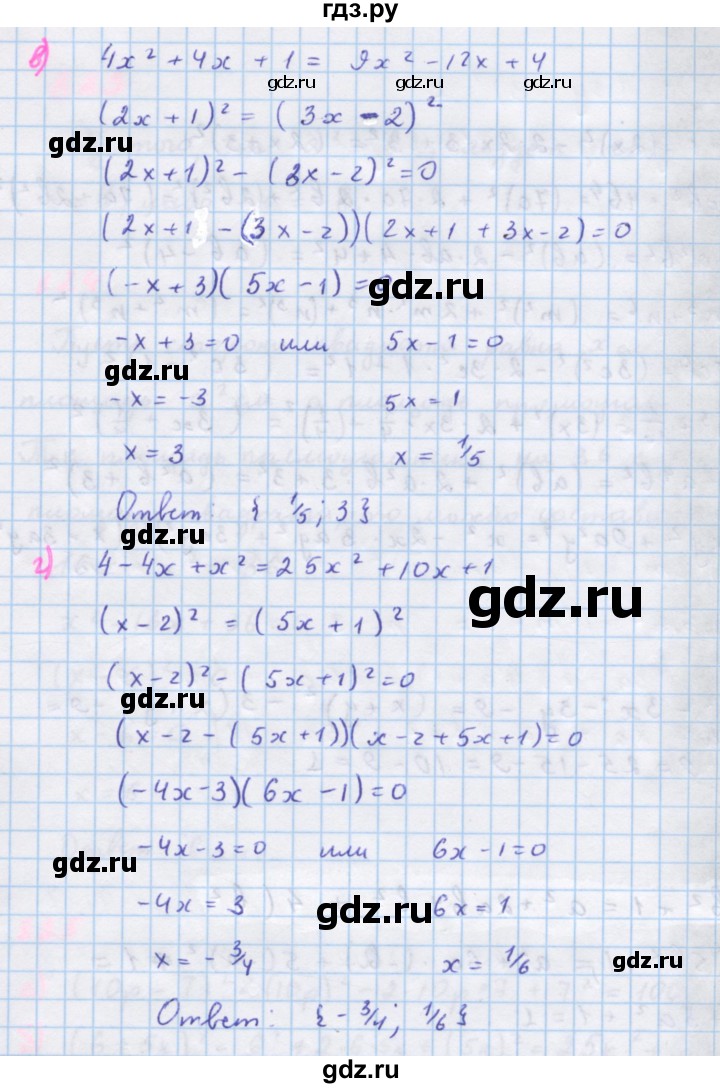 гдз.ру
в) 4x² + 4x + 1 = 9x² - 12x + 4
gdz.ru gdz.ru gdz.ru
(2x + 1)² = (3x - 2)²
gdz.ru
(2x+1)² - (3x - 2)² = 0
(2x+1 - (3x - 2))(2x+1 + 3x - 2) = 0
(-x + 3)(5x - 1) = 0
gdz.ru
-x + 3 = 0 или 5x - 1 = 0
gdz.ru
-x = -3 5x = 1
x = 3 x = 1/5
Ответ: { 1/5; 3 }
gdz.ru
г) 4 - 4x + x² = 25x² + 10x + 1
gdz.ru
(x - 2)² = (5x + 1)²
(x - 2)² - (5x + 1)² = 0
gdz.ru
(x - 2 - (5x+1))(x - 2 + 5x + 1) = 0
(-4x - 3)(6x - 1) = 0
-4x - 3 = 0 или 6x - 1 = 0
gdz.ru
-4x = 3 6x = 1
gdz.ru
x = - 3/4 x = 1/6
gdz.ru
Ответ: { - 3/4; 1/6 }
gdz.ru